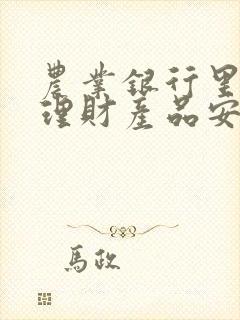 農業銀行里
理財產品安
馬政